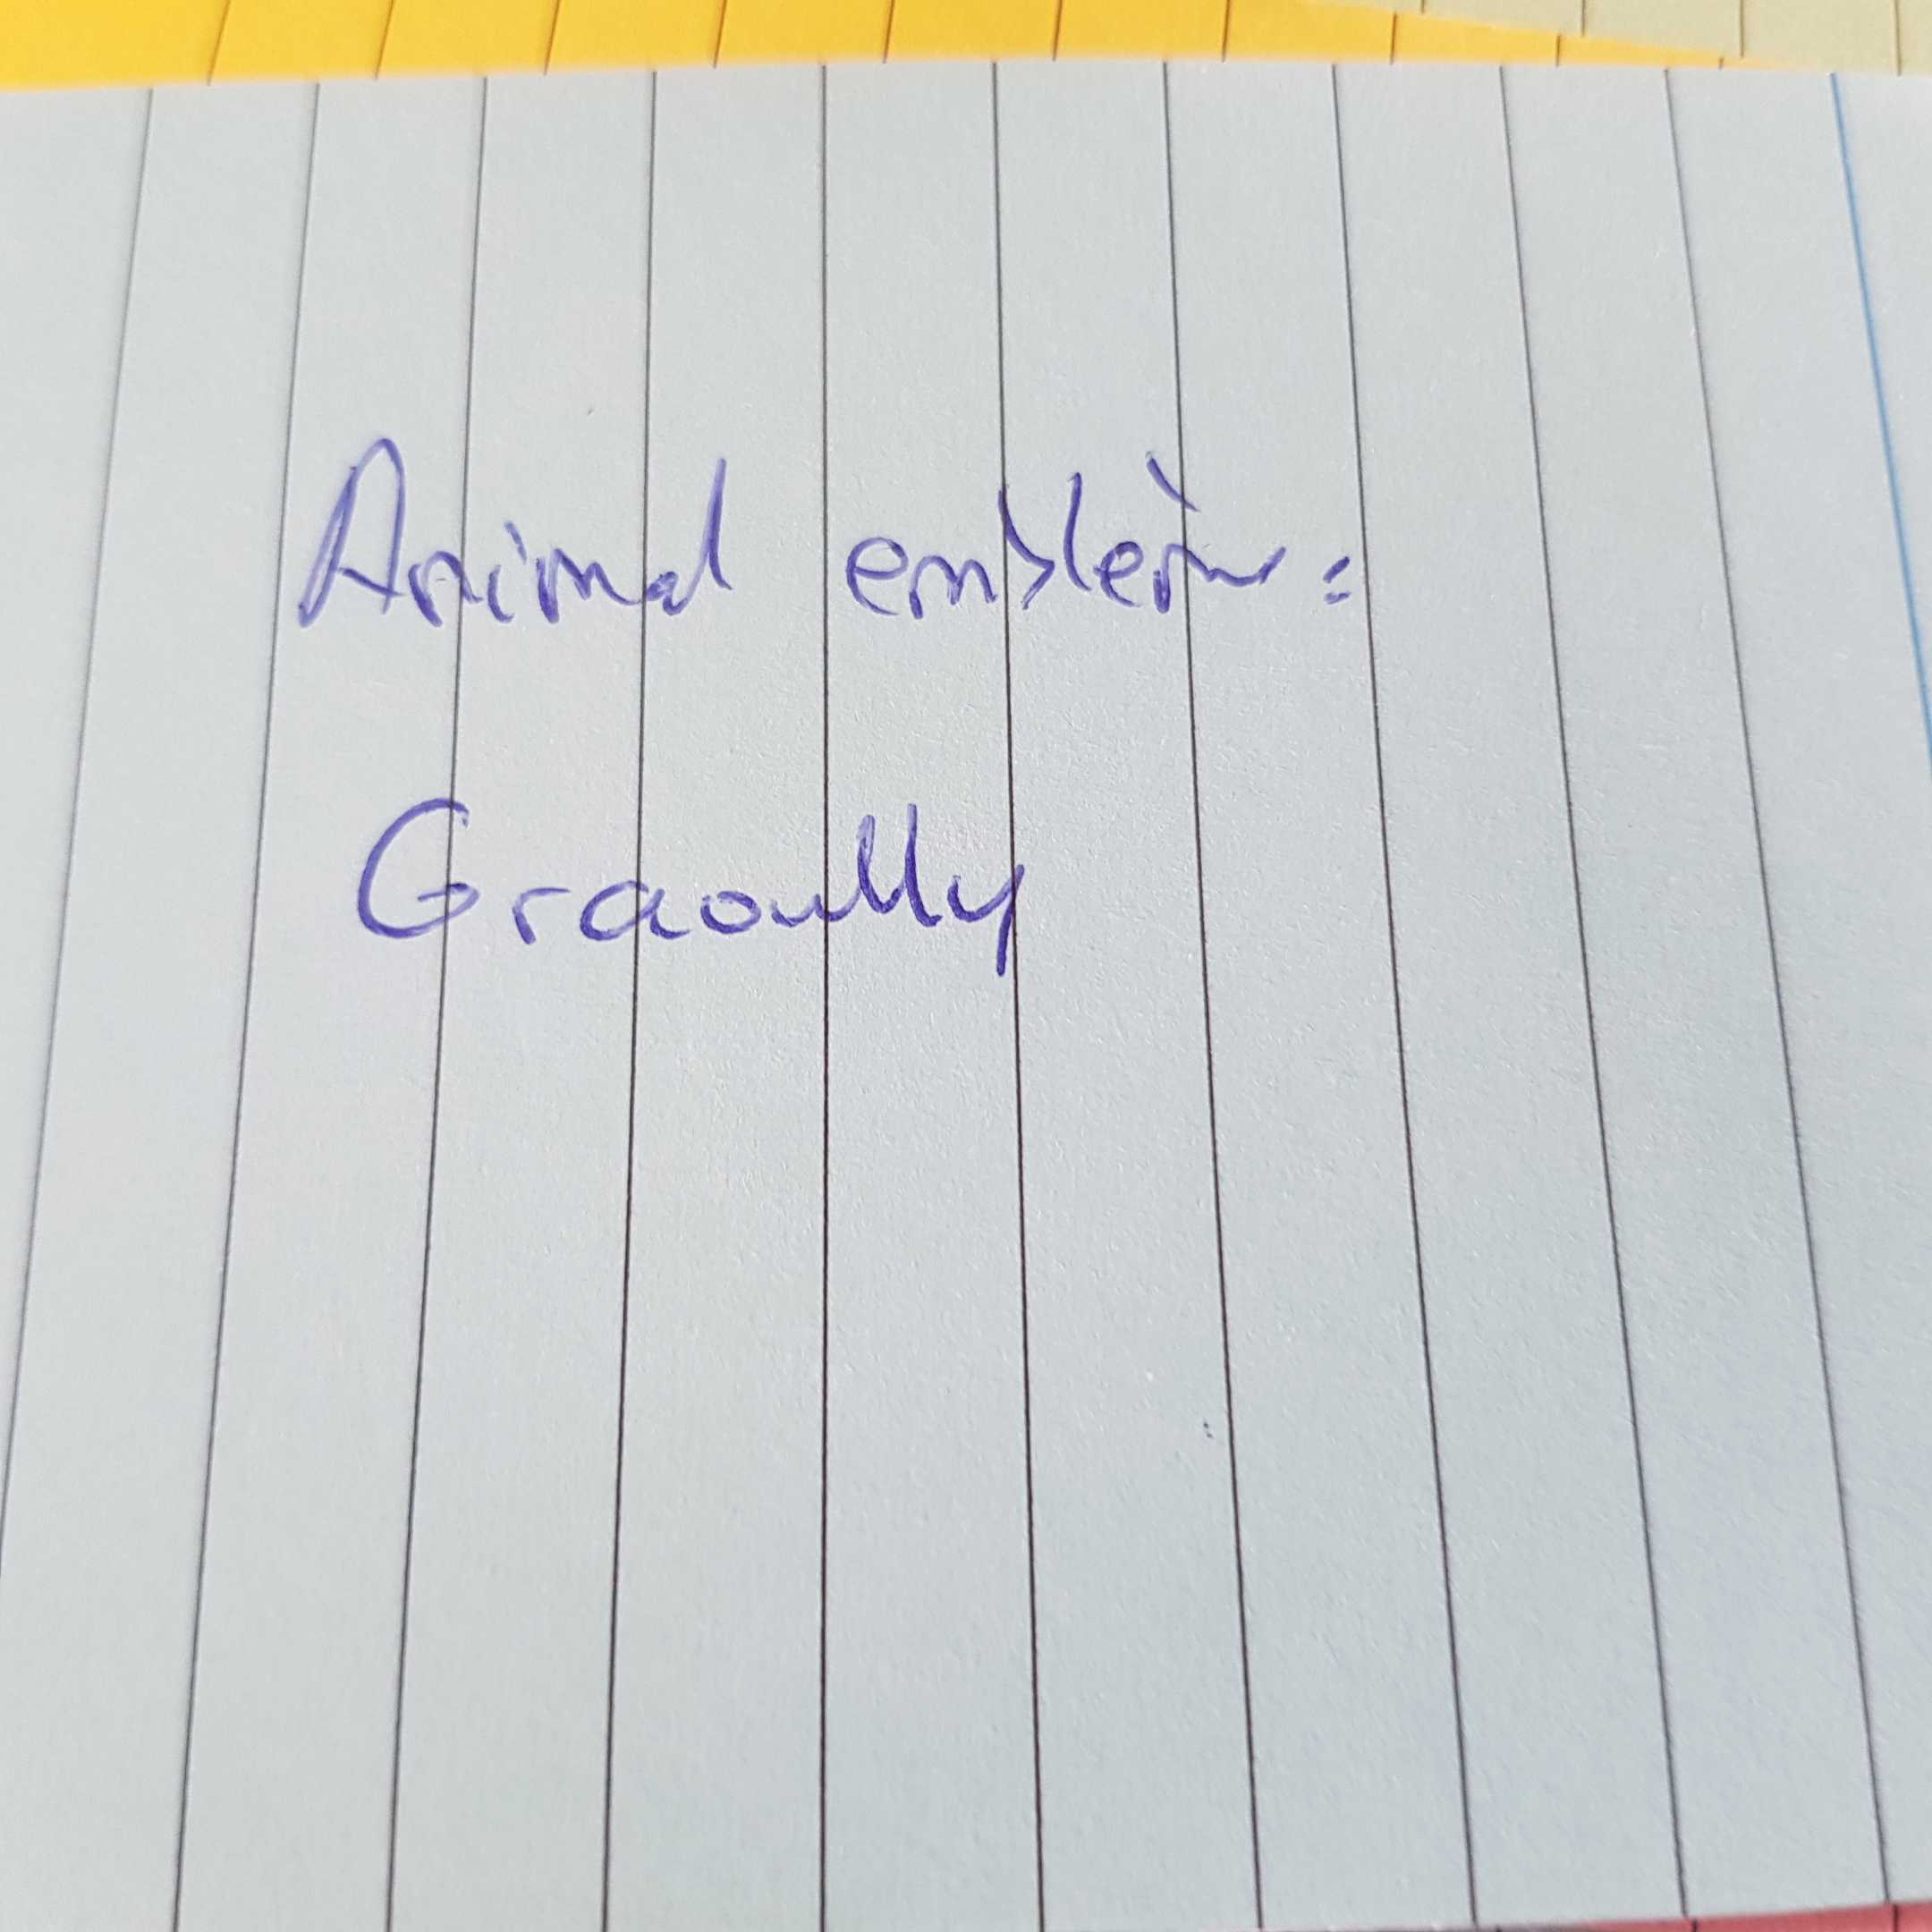 Animal emblème :
Graoully